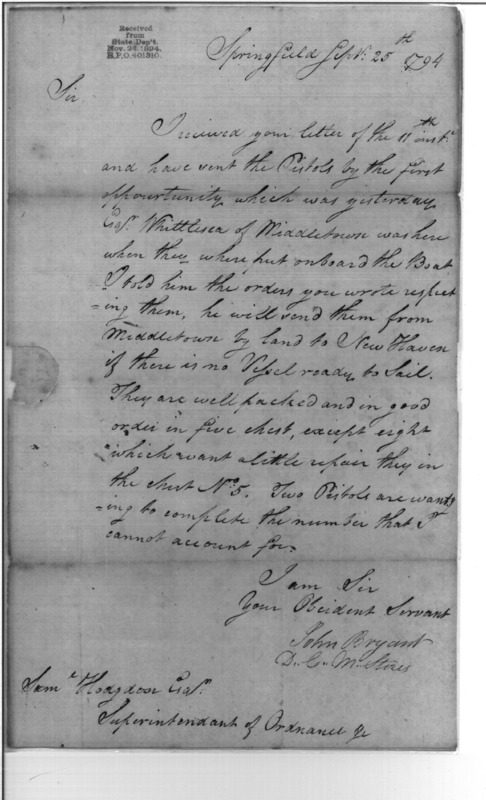 Received
from
State Dep't.
Nov. 24, 1894.
R.P.O. 401310.
Springfield Sept. 25th 1794
Sir
I received your letter of the 11th inst.
and have sent the Pistols by the first
oppourtunity which was yisterday
Esqr. Whittlesea of Middletown was here
when they where put onboard the Boat
I told him the orders you wrote respect
=ing them, he will send them from
Middletown by land to New Haven
if there is no Vessel ready to Sail.
They are well packed and in good
order in five chest, except eight
which want a little repair they in
the chest No. 5. Two Pistols are want
=ing to complete the number that I
cannot account for.
I am Sir
Your Obeident Servant
John Bryant
D. C. M. Stores
Saml. Hodgdon Esqr.
Superintendant of Ordnance &c